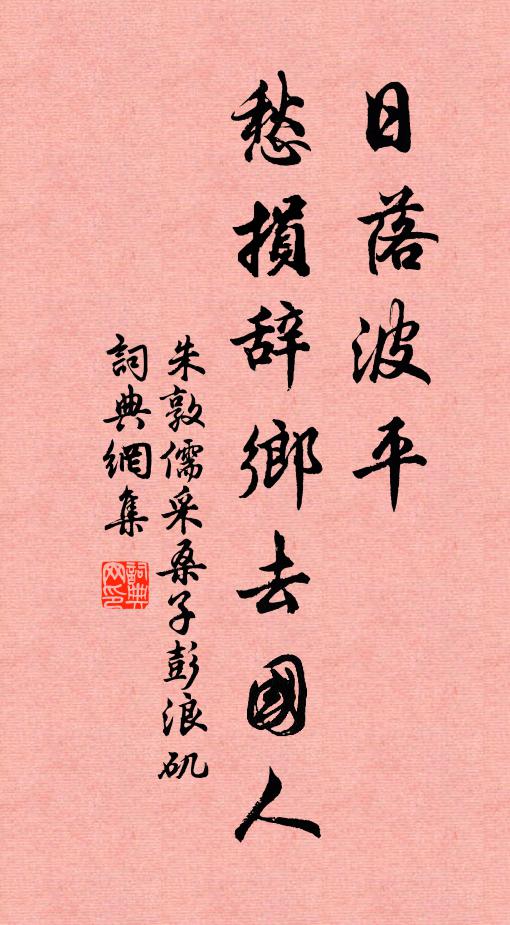 日落波平
愁損辞鄉去國人
朱敦儒采桑子彭浪矶
詞典網集
詞典
网印